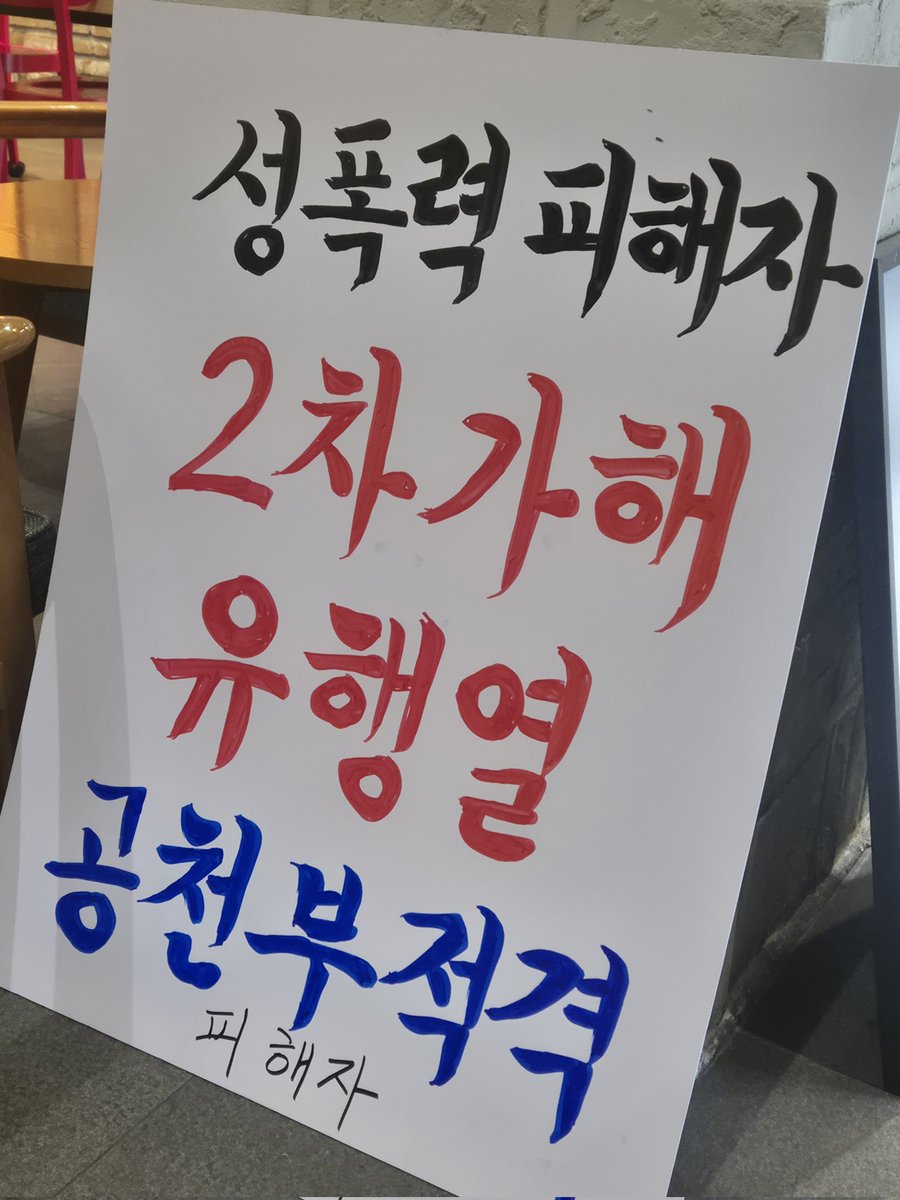 성폭력 피해자
2차 가해
유행열
공천 부적격
피해자